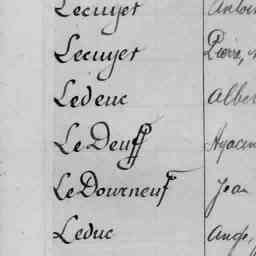 Lecuyer
Lecuyer Pierre,
Ledeuc Alber
Le Deuff Hyacin
Le Dourneuf Jean
Leduc Ange,